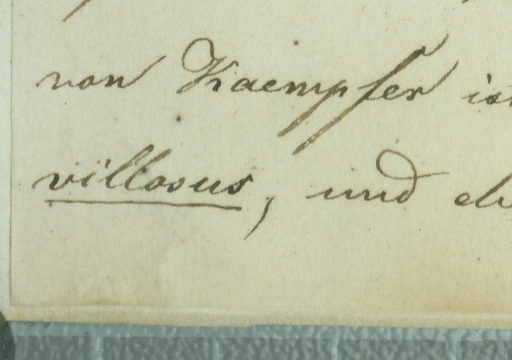 von Kaempfer ist
villosus, und